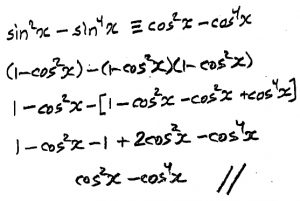 sin²x - sin⁴x ≡ cos²x - cos⁴x
(1-cos²x) - (1-cos²x)(1-cos²x)
1 - cos²x - [1 - cos²x - cos²x + cos⁴x]
1 - cos²x - 1 + 2cos²x - cos⁴x
cos²x - cos⁴x //